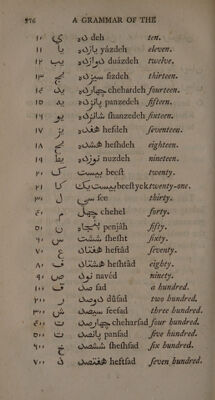 276 A GRAMMAR OF THE
١٠ ى ده deh ten.
١١ يا يازده yázdeh eleven.
١٢ يب دوازده duázdeh twelve.
١٣ يج سيزده sizdeh thirteen.
١٤ يد چهارده chehardeh fourteen.
١٥ يه پانزده panzedeh fifteen.
١٦ يو شانزده shanzedeh sixteen.
١٧ يز هفده hefdeh seventeen.
١٨ يح هشده heshdeh eighteen.
١٩ يط نوزده nuzdeh nineteen.
٢٠ ك بيست beest twenty.
٢١ كا بيست ويك beest yek twenty-one.
٣٠ ل سى see thirty.
٤٠ م چهل chehel forty.
٥٠ ن پنجاه penjáh fifty.
٦٠ س شصت shesht sixty.
٧٠ ع هفتاد heftád seventy.
٨٠ ف هشتاد heshtád eighty.
٩٠ ص نود navéd ninety.
١٠٠ ق صد sad a hundred.
٢٠٠ ر دوصد dúsad two hundred.
٣٠٠ ش سيصد seesad three hundred.
٤٠٠ ت چهارصد cheharsad four hundred.
٥٠٠ ث پانصد pansad five hundred.
٦٠٠ خ ششصد sheshsad six hundred.
٧٠٠ ذ هفتصد heftsad seven hundred.